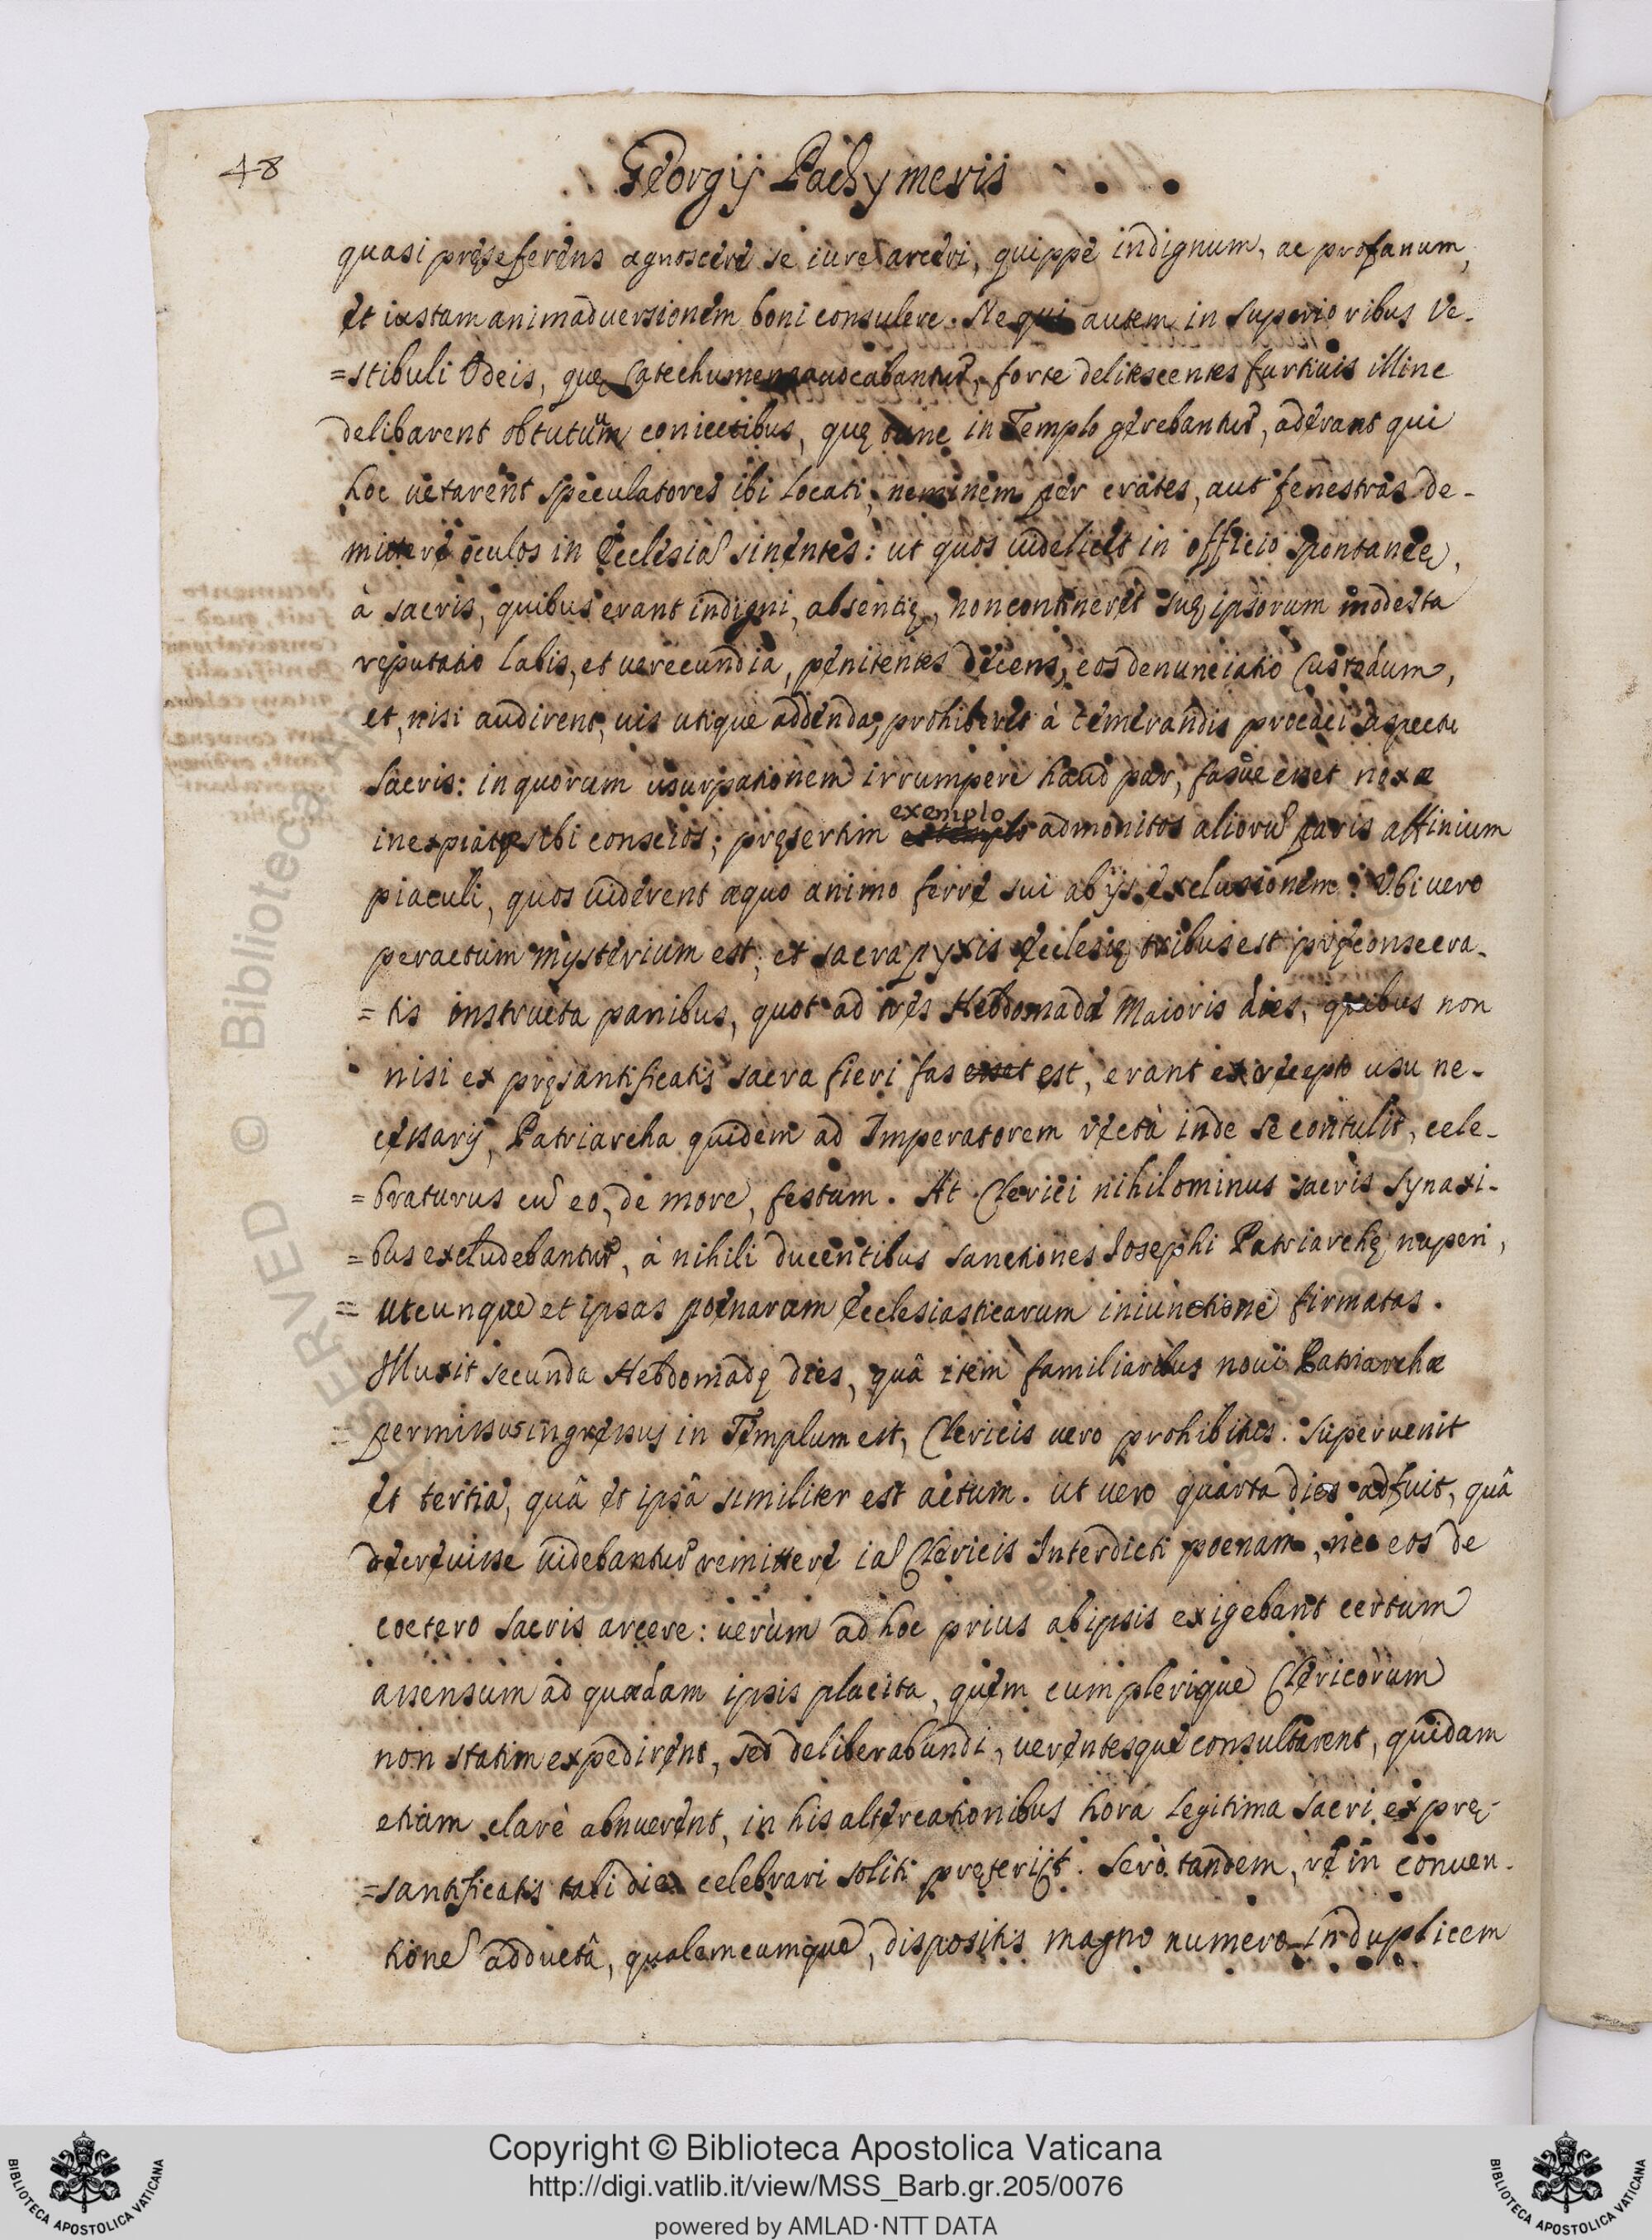 48
Georgij Pachymeris
quasi pręseferens agnoscere se iure arceri, quippe indignum, ac profanum,
et iustam animaduersionem boni consulere. Ne qui autem in superioribus Ve-
=stibuli Odeis, quę Catechumena uocabantur, forte delitescentes furtiuis illinc
delibarent obtutum coniectibus, quę tunc in Templo gerebantur, aderant qui
hoc uetarent speculatores ibi locati, neminem per crates, aut fenestras de-
mittere oculos in Ecclesiã sinentes: ut quos uidelicet in officio spontaneę,
à sacris, quibus erant indigni, absentię, non contineret suę ipsorum modesta
reputatio labis, et uerecundia, penitentes decens, eos denunciatio Custodum,
et, nisi audirent, uis utique addenda, prohiberet à temerandis procaci aspectu
sacris: in quorum usurpationem irrumpere haud par, fasue esset noxæ
inexpiatę sibi conscios; pręsertim exemplo admonitos aliorũ paris affinium
piaculi, quos uiderent æquo animo ferre sui ab ijs exclusionem. Vbi vero
peractum mysterium est, et sacra pyxis Ecclesię tribus est pręconsecra-
=tis instructa panibus, quot ad tres Hebdomadæ Maioris dies, quibus non
nisi ex pręsantificatis sacra fieri fas esset est, erant ex recepto usu ne-
cessarij, Patriarcha quidem ad Imperatorem rectà inde se contulit, cele-
=braturus cũ eo, de more, festum. At Clerici nihilominus sacris Synaxi-
=bus excludebantur, à nihili ducentibus sanctiones Iosephi Patriarchę nuperi,
= utcunque et ipsas poenarum Ecclesiasticarum iniunctione firmatas.
Illuxit secunda Hebdomadę dies, quâ item familiaribus noui Patriarchæ
= permissus ingressus in Templum est, Clericis vero prohibitus. Superuenit
et tertia, quâ et ipsâ similiter est actum. ut vero quarta dies adfuit, quâ
decreuisse uidebantur remittere iã Clericis Interdicti poenam, nec eos de
coetero sacris arcere: uerùm ad hoc prius ab ipsis exigebant certum
assensum ad quædam ipsis placita, quem cum plerique Clericorum
non statim expedirent, sed deliberabundi, uerentesque consultarent, quidam
etiam clarè abnuerent, in his altercationibus hora legitima sacri ex prę-
=santificatis tali die celebrari soliti pręterijt. Serò tandem, re in conuen-
tione adductâ, qualemcumque, dispositis magno numero in duplicem
documento
fuit, quod
Copyright © Biblioteca Apostolica Vaticana
http://digi.vatlib.it/view/MSS_Barb.gr.205/0076
powered by AMLAD·NTT DATA
BIBLIOTECA APOSTOLICA VATICANA
BIBLIOTECA APOSTOLICA VATICANA